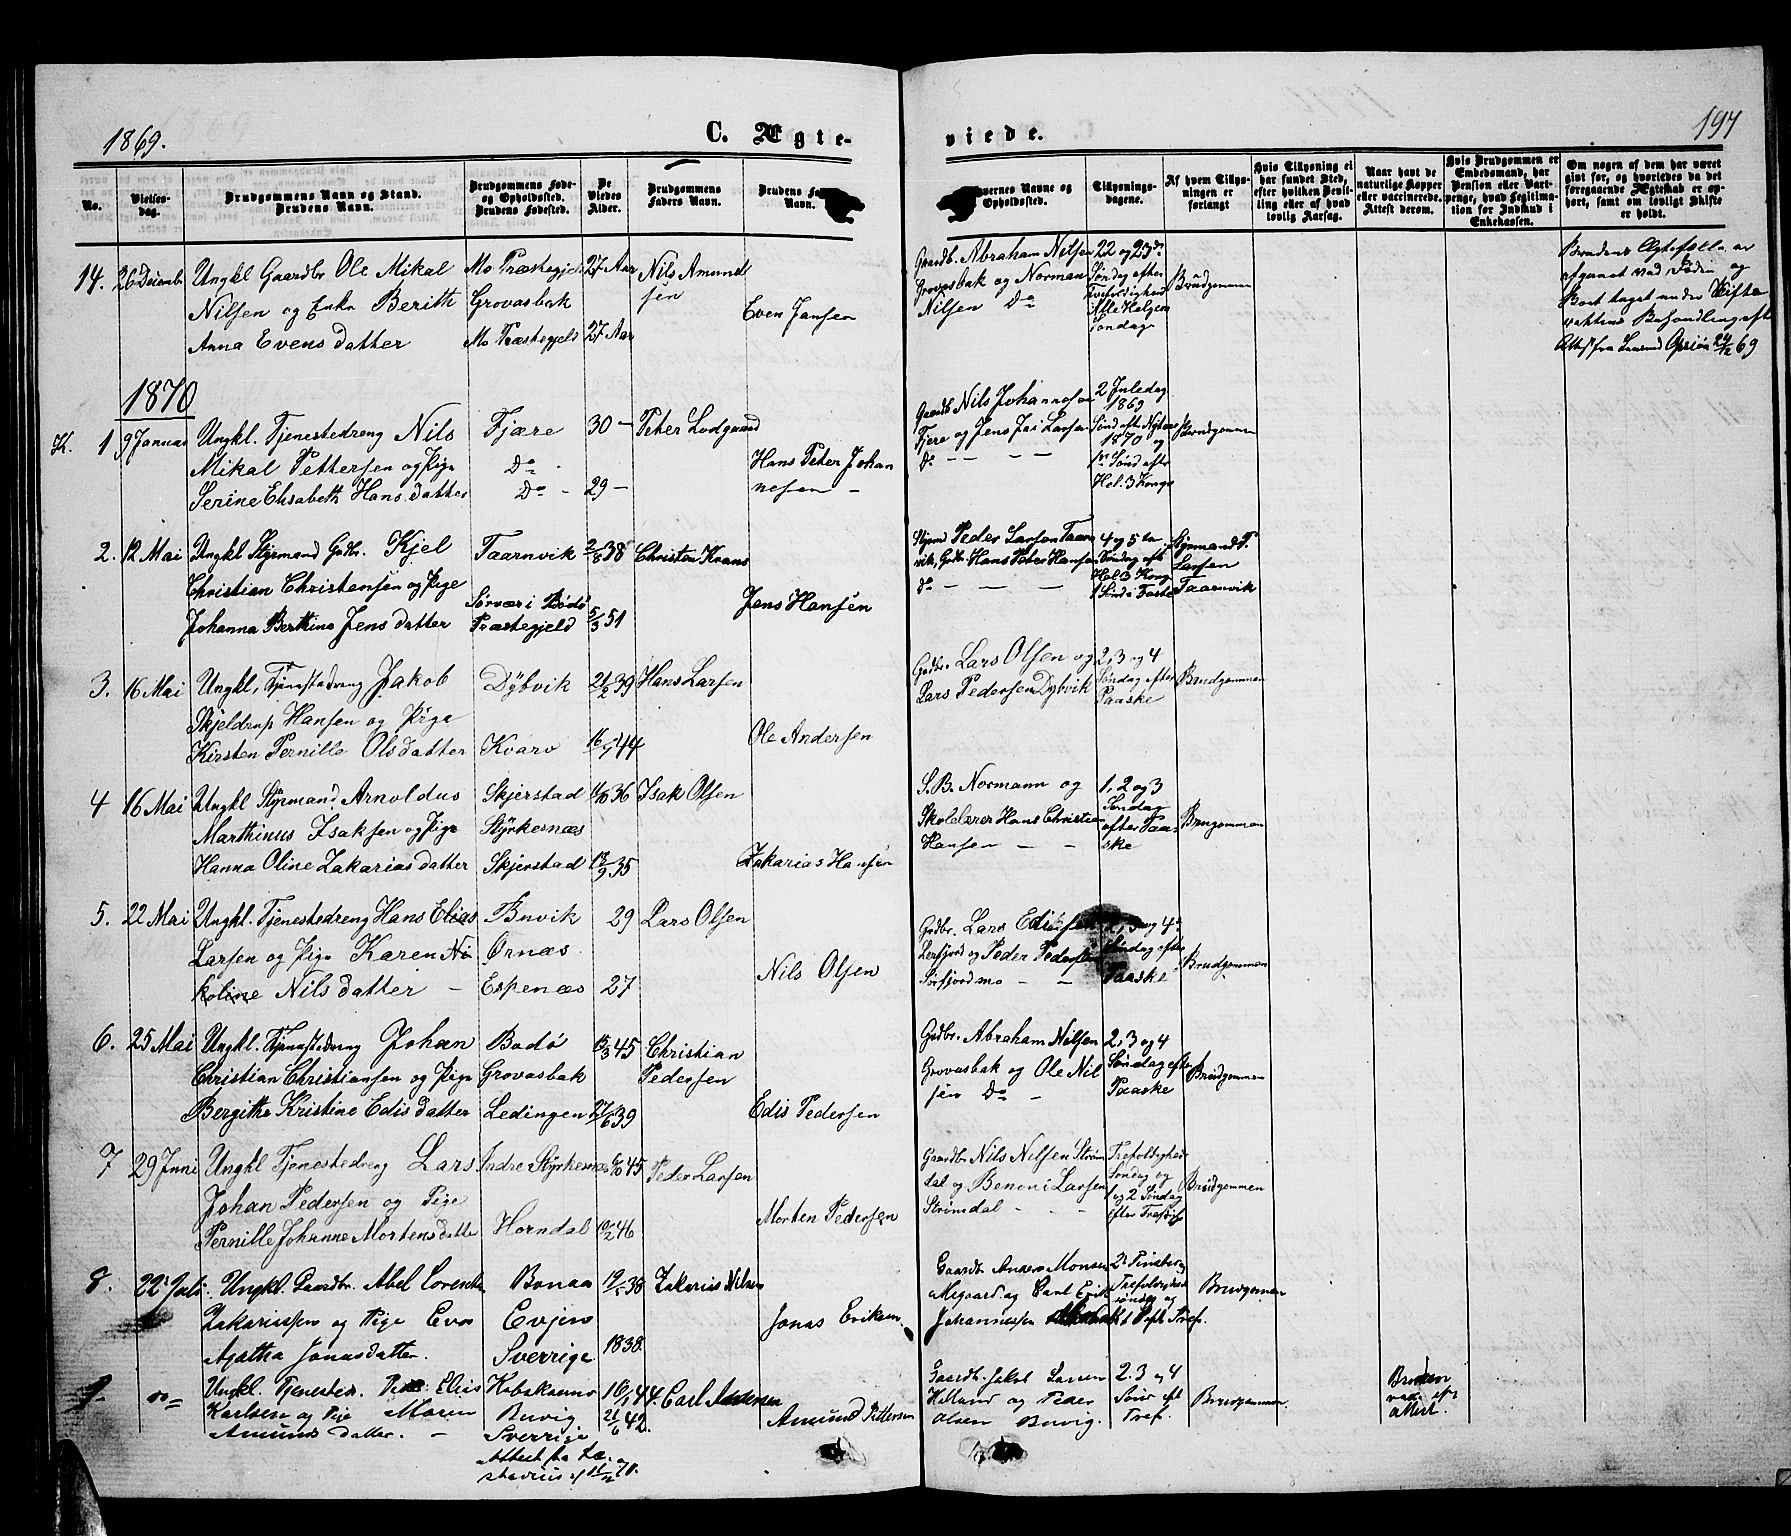 1869.
C. Ægte-
viede.
197
No.
Vielses-
dag.
Brudgommens Navn og Stand.
Brudens Navn.
Brudgommens Føde-
og Opholdssted.
Brudens Fødested.
De
Viedes
Alder.
Brudgommens
Faders Navn.
Brudens
Navn.
Navne og
Opholdssted.
Tillysnings-
dagene.
Af hvem Tillys-
ningen er
forlangt
Hvis Tillysning ei
har fundet Sted,
efter hvilken Bevil-
ling eller af hvad
lovlig Aarsag.
Naar havt de
naturlige Kopper
eller vaccinerede.
Attest derom.
Hvis Brudgommen er
Embedsmand, har
Pension eller Vart-
penge, hvad Legitima-
tion for Indskud i
Enkekassen.
Om nogen af dem har været
gift før, og hvorledes da det
foregaaende Ægteskab er op-
hørt, samt om lovligt Skifte
er holdt.
14. 26 Decemb Ungkl Gaardbr Ole Mikal Mo Præstegjel 27 Aar Nils Amund Gaardb. Abraham Nilsen 22 og 23de Brudgommen Brudens Ægtefælle er
Nilsen og Enke Berith Grovasbak sen Even Jansen Grovasbak og Norman Søndag efter afgaaet ved Døden og
Anna Evensdatter Mo Præstegjeld 27 Aar Nilsen Do Trefoldighed Bort taget under Skifte
Alle Helgen rettens Behandling eft
Søndag Attest fra 69
1870
K. 1 9 Januar Ungkl. Tjenestedreng Nils Fjære 30 — Peter Lodgaard Gaardb Nils Johannesen 2 Juledag Brudgommen
Mikal Pettersen og Pige Do - Hans Peter Johan Fjere og Jens Larsen 1869
Serine Elisabeth Hansdatter Do - 29 — nesen — do — — — Sønd efter Nytaar
1870 og
1ste Sønd efter
Hel. 3 Konge
2. 12 Mai Ungkl Styrmand Gdbr. Kjel Taarnvik 2/8 38 Christen Krans Styrmd Peder Larsen Taarn 4 og 5te Styrmand P.
Christian Christensen og Pige Sørvær i Bodø vik, Gdb. Hans Peter Hansen Søndag eft Larsen
Johanna Berthine Jensdatter Præstegjeld 5/3 51 Jens Hansen do — — — Hel 3 Kong Taarnvik
1 Sønd i Faste
3. 16 Mai Ungkl, Tjenestedreng Jakob Dybvik 21/2 39 Hans Larsen Gdbr. Lars Olsen og 2, 3 og 4 Brudgommen
Skjeldrup Hansen og Pige Lars Pedersen Dybvik Søndag efter
Kirsten Pernille Olsdatter Kvarv 16/9 44 Ole Andersen Paaske
4 16 Mai Ungkl Styrmand Arnoldus Skjerstad 11/10 36 Isak Olsen S. B. Normann og 1, 2 og 3 Brugommen
Marthinus Isaksen og Pige Styrkesnæs Skolelærer Hans Christian Søndag
Hanna Oline Zakariasdatter Skjerstad 13/9 35 Zakarias Hansen Hansen — — efter Paa-
ske
5. 22 Mai Ungkl. Tjenestedreng Hans Elias Buvik 29 Lars Olsen Gdbr. Lars Edisen 2, 3 og 4de Brudgommen
Larsen og Pige Karen Ni Ørnæs Lerfjord og Peder Pedersen Søndag efter
koline Nilsdatter — Espenæs 27 Nils Olsen Sørfjordmo — — Paaske
6. 25 Mai Ungkl. Tjenestedreng Johan Bodø 15/3 45 Christian Gdbr. Abraham Nilsen 2, 3 og 4 Brudgommen
Christian Christiansen og Pige Grovasbak Pedersen Grovasbak og Ole Nil Søndag efter
Bergithe Kristine Edisdatter Ledingen 27/6 39 Edis Pedersen sen Do - Paaske
7 29 Juni Ungkl Tjenestedreng Lars Indre Styrkesnæs 6/10 45 Peder Larsen Gaardbr Nils Nilsen Strøm Trefoldighed Brudgommen
Johan Pedersen og Pige dal og Benoni Larsen Søndag og
Pernille Johanne Mortensdatter Horndal 10/2 46 Morten Pedersen Strømdal - - - 1 og 2 Søndag
efter Trefold
8. 22de Juli. Ungkl. Gaardbr. Abel Lorents Bonaa 19/5 38 Zakarias Nilsen Gaardb. Anders Monsen 2 Pintsedag Brudgommen
Zakariassen og Pige Eva Evjen Jonas Eriksen. Misgaard. og Carl Erik Trefoldighed
Agatha Jonasdatter. Sverrige 1838. Johannessen søndag og
Søn eft Tref.
9. Ungkl. Tjenestedr. Peder Elias Kobskarmo 16/1 44. Carl Andersen Gaardb. Jakob Larsen 2. 3 og 4 Brudgommen. Bruden
Karlsen og Pige Maren Buvig 21/6 42. Amund Pettersen Helland og Peder Sønd eft vac. efr
Amundsdatter. — Sverrige Olsen Buvig. Tref. attest.
Attest fra